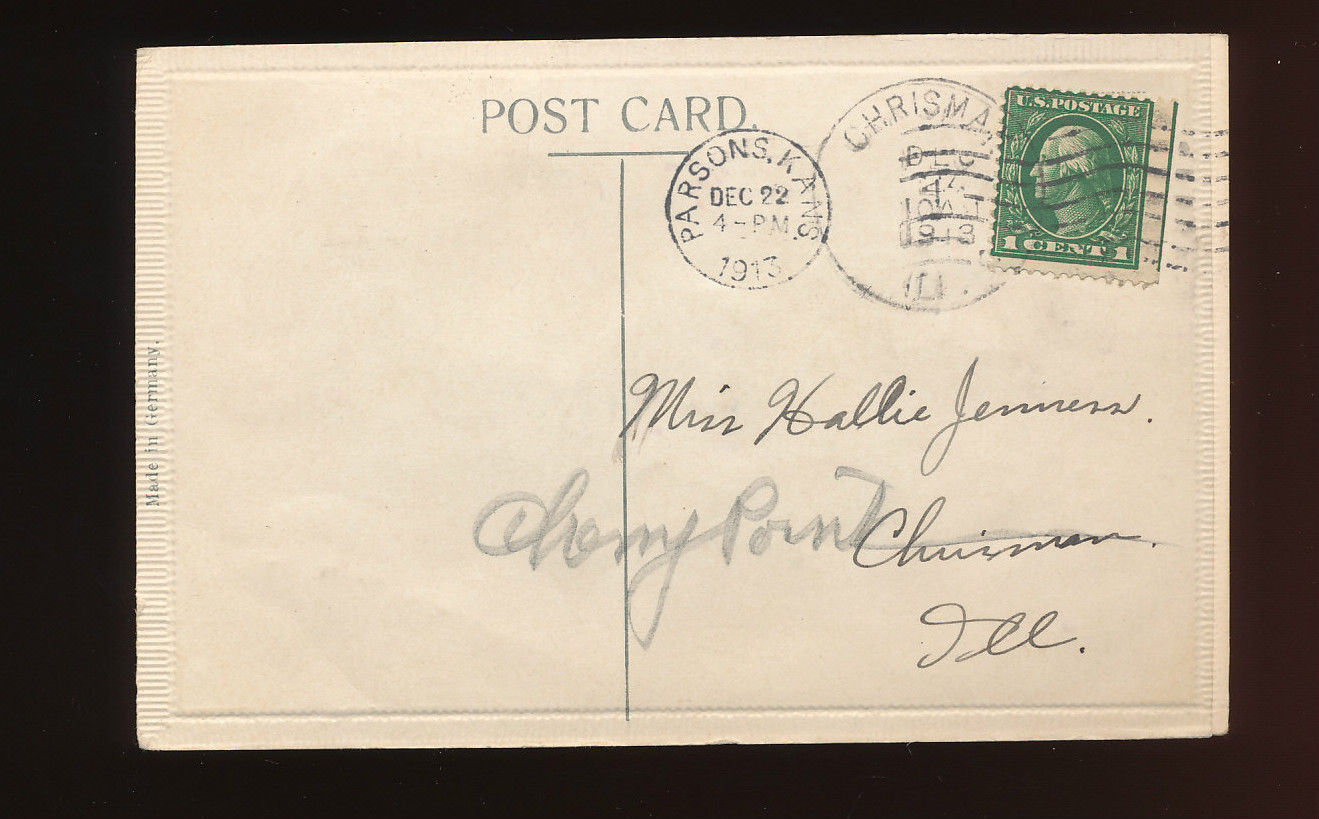 POST CARD.
PARSONS, KANS.
DEC 22
4-PM
1913
CHRISMA
DEC
10 A
1913
ILL.
U.S. POSTAGE
1 CENT 1
Made in Germany.
Miss Hallie Jenness.
Cherry Point
Chrisman.
Ill.